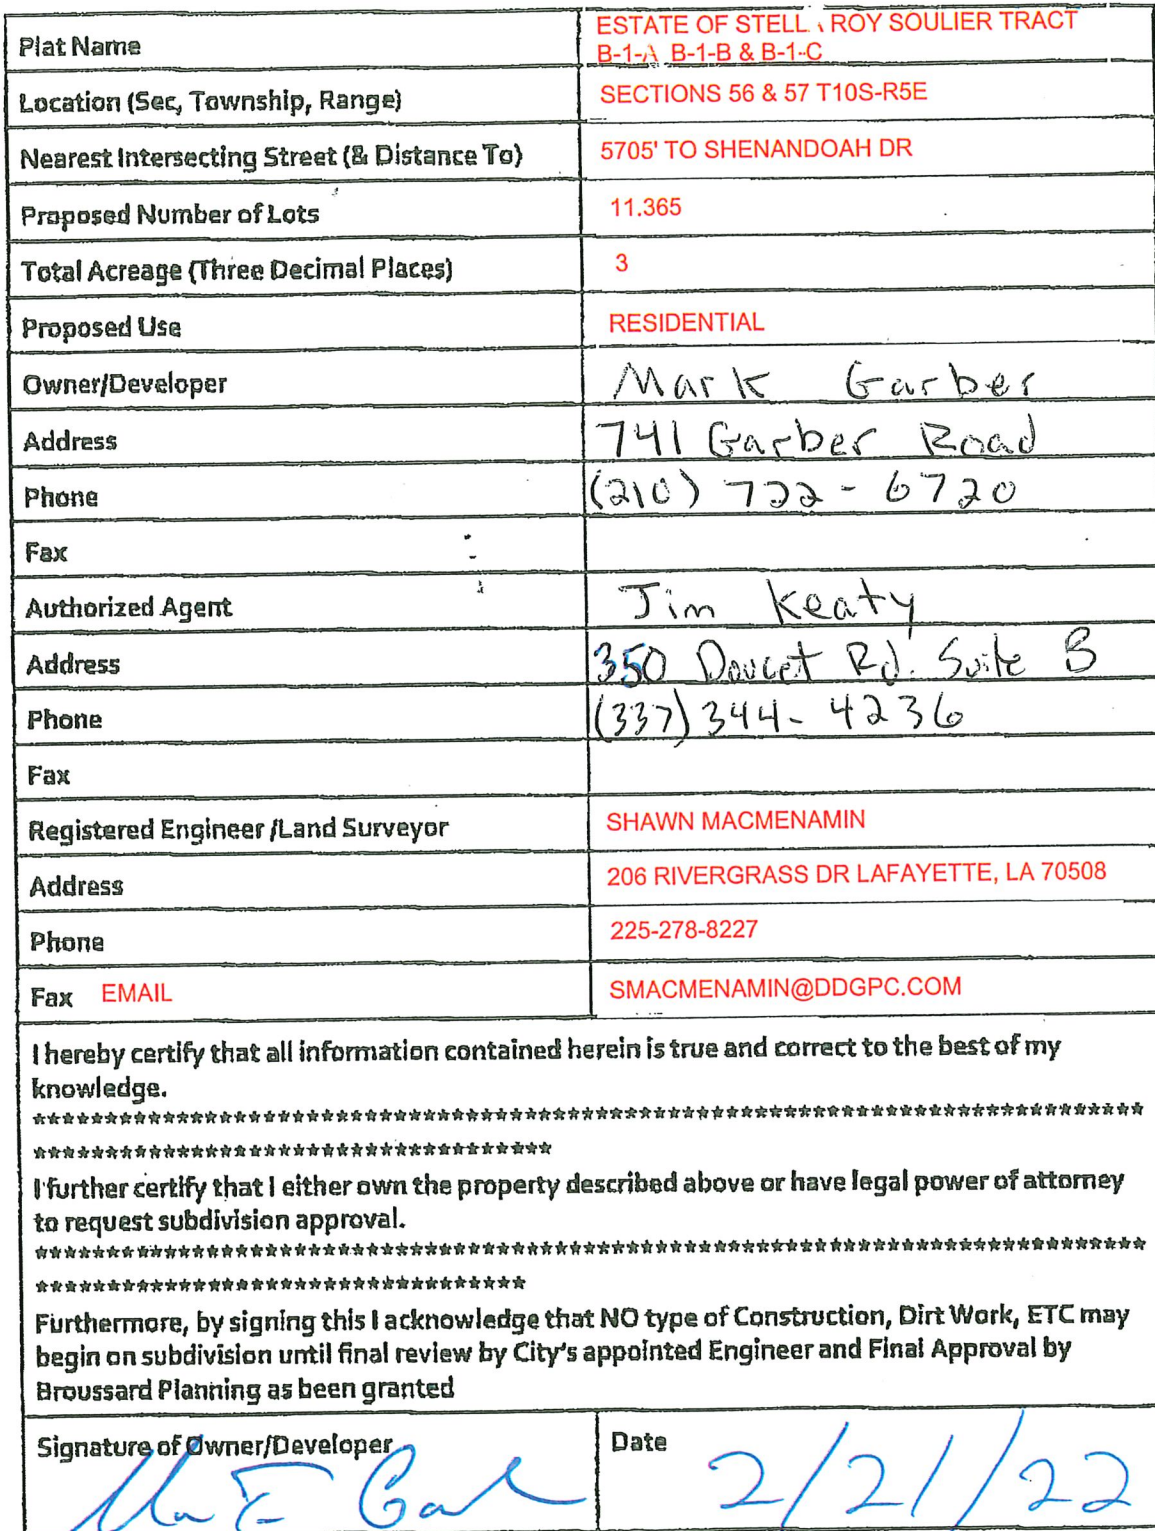 Plat Name
ESTATE OF STELL ROY SOULIER TRACT
B-1-A B-1-B & B-1-C
Location (Sec, Township, Range)
SECTIONS 56 & 57 T10S-R5E
Nearest Intersecting Street (& Distance To)
5705' TO SHENANDOAH DR
Proposed Number of Lots
11.365
Total Acreage (Three Decimal Places)
3
Proposed Use
RESIDENTIAL
Owner/Developer
Mark Garber
Address
741 Garber Road
Phone
(210) 722-6720
Fax
Authorized Agent
Jim Keaty
Address
350 Doucet Rd. Suite B
Phone
(337) 344-4236
Fax
Registered Engineer /Land Surveyor
SHAWN MACMENAMIN
Address
206 RIVERGRASS DR LAFAYETTE, LA 70508
Phone
225-278-8227
Fax EMAIL
SMACMENAMIN@DDGPC.COM
I hereby certify that all information contained herein is true and correct to the best of my
knowledge.
*****************************************************************************
************************************
I further certify that I either own the property described above or have legal power of attorney
to request subdivision approval.
*****************************************************************************
**********************************
Furthermore, by signing this I acknowledge that NO type of Construction, Dirt Work, ETC may
begin on subdivision until final review by City's appointed Engineer and Final Approval by
Broussard Planning as been granted
Signature of Owner/Developer
Date
2/21/22